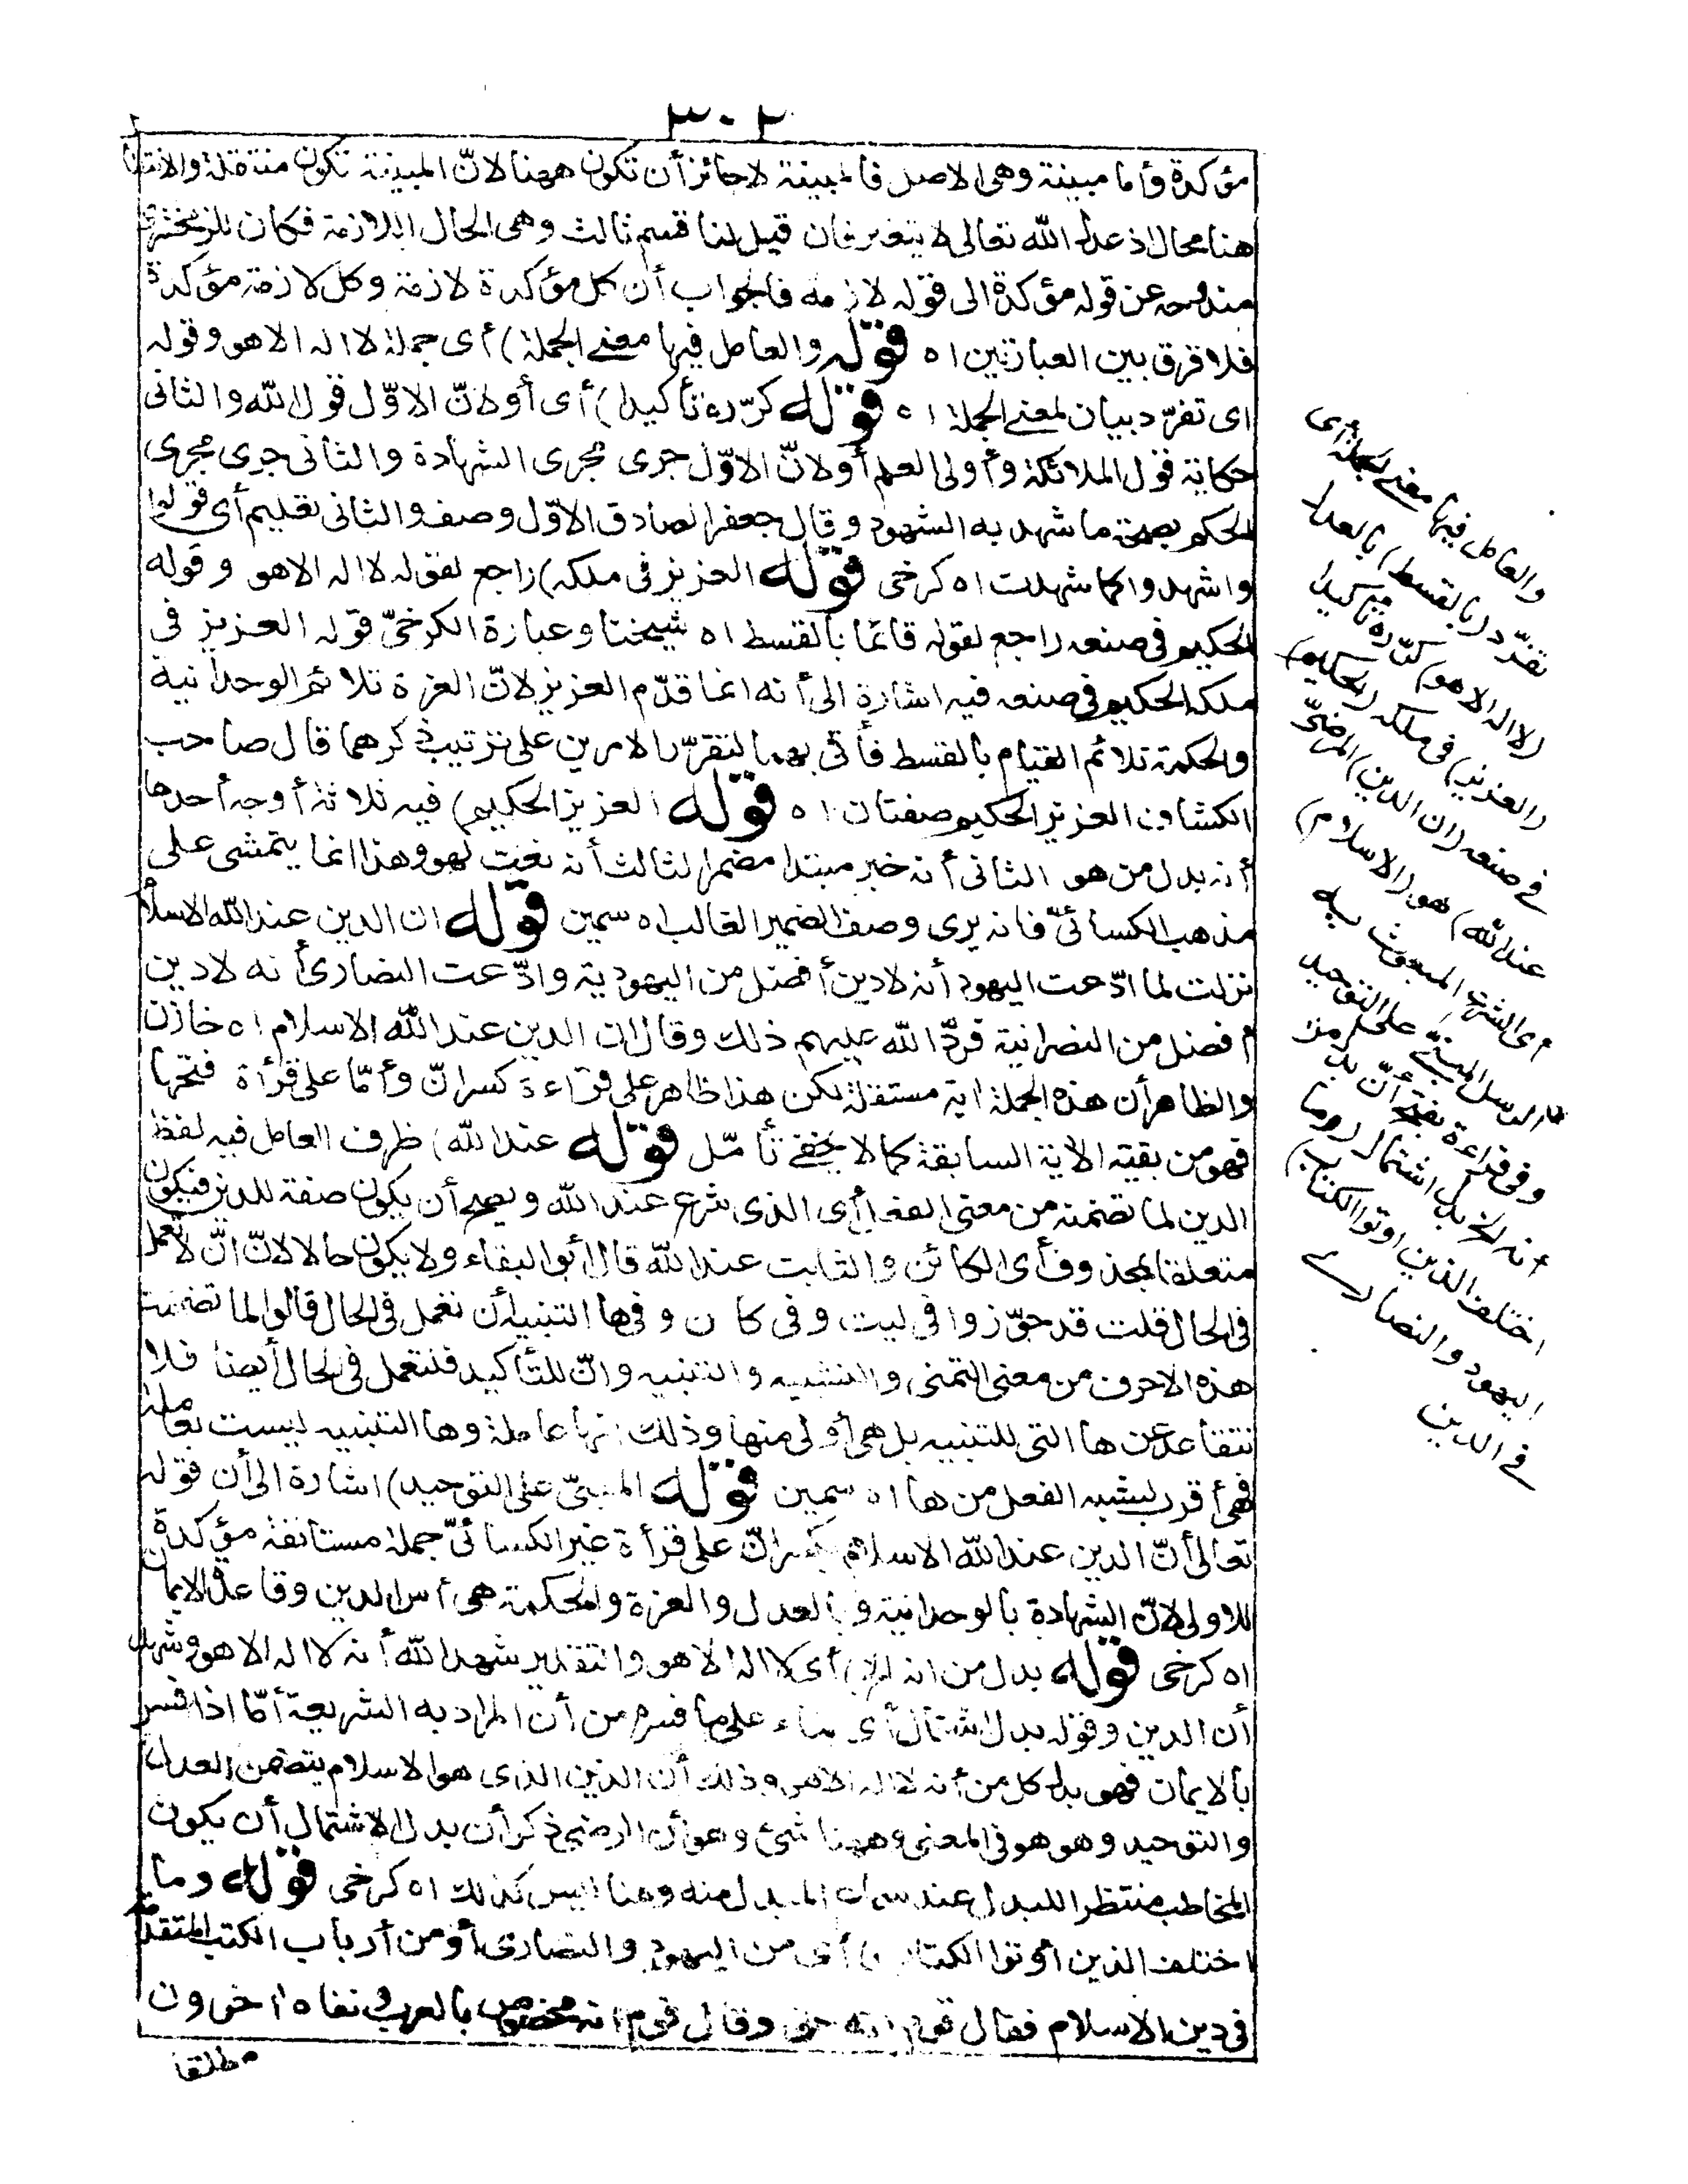 ٣٠٢
مؤكدة وأما مبينة وهى الاصل فالمبينة لاجائز أن تكون ههنا لانّ المبينة تكون منتقلة والانتقال
هنا محال اذ عدل الله تعالى لا يتغير فان قيل لنا قسم ثالث وهى الحال اللازمة فكان للزمخشرى
مندوحة عن قوله مؤكدة الى قوله لازمة فالجواب أن كل مؤكدة لازمة وكل لازمة مؤكدة
فلا فرق بين العبارتين اه قوله والعامل فيها معنى الجملة) أى جملة لا اله الا هو وقوله
اى تفرّد بيان لمعنى الجملة اه قوله كرّره تأكيدا) أى أولانّ الاوّل قول الله والثانى
حكاية قول الملائكة وأولى العلم أولانّ الاوّل جرى مجرى الشهادة والثانى جرى مجرى
الحكم بصحة ما شهد به الشهود وقال جعفر الصادق الاوّل وصف والثانى تعليم أى قولوا
واشهدوا كما شهدت اه كرخى قوله العزيز فى ملكه) راجع لقوله لا اله الا هو وقوله
الحكيم فى صنعه راجع لقوله قائما بالقسط اه شيخنا وعبارة الكرخىّ قوله العزيز فى
ملكه الحكيم فى صنعه فيه اشارة الى أنه انما قدّم العزيز لانّ العزة تلائم الوحدانية
والحكمة تلائم القيام بالقسط فأتى بهما لتقرّر الامرين على ترتيب ذكرهما قال صاحب
الكشاف العزيز الحكيم صفتان اه قوله العزيز الحكيم) فيه ثلاثة أوجه أحدها
أنه بدل من هو الثانى أنه خبر مبتدا مضمر الثالث أنه نعت لهو وهذا انما يتمشى على
مذهب الكسائىّ فانه يرى وصف الضمير الغائب اه سمين قوله ان الدين عند الله الاسلام
نزلت لما ادّعت اليهود أنه لا دين أفضل من اليهودية وادّعت النصارى أنه لا دين
أفضل من النصرانية فردّ الله عليهم ذلك وقال ان الدين عند الله الاسلام اه خازن
والظاهر أن هذه الجملة اية مستقلة لكن هذا ظاهر على قراءة كسر انّ وأمّا على قرأة فتحها
فهو من بقية الاية السابقة كما لا يخفى تأمّل قوله عند الله) ظرف العامل فيه لفظ
الدين لما تضمنه من معنى الفعل أى الذى شرع عند الله ويصح أن يكون صفة للدين فيكون
متعلقا بمحذوف أى الكائن والثابت عند الله قال أبو البقاء ولا يكون حالا لانّ انّ لا تعمل
فى الحال قلت قد جوّزوا فى ليت وفى كان وفى ها التنبيه أن تعمل فى الحال قالوا لما تضمنت
هذه الاحرف من معنى التمنى والتشبيه والتنبيه وانّ للتأكيد فلتعمل فى الحال أيضا فلا
تتقاعد عن ها التى للتنبيه بل هى أولى منها وذلك انها عاملة وها التنبيه ليست بعاملة
فهى أقرب لشبه الفعل من ها اه سمين قوله المبنىّ على التوحيد) اشارة الى أن قوله
تعالى أنّ الدين عند الله الاسلام بكسر انّ على قرأة غير الكسائىّ جملة مستانفة مؤكدة
للاولى لانّ الشهادة بالوحدانية وبالعدل والعزة والحكمة هى أس الدين وقاعدة الايمان
اه كرخى قوله بدل من انه الخ) أى لا اله الا هو والتقدير شهد الله أنه لا اله الا هو وشهد
أن الدين وقوله بدل اشتمال أى بناء على ما فسره من أن المراد به الشريعة أمّا اذا فسر
بالايمان فهو بدل كل من أنه لا اله الا هو وذلك أن الدين الذى هو الاسلام يتضمن العدل
والتوحيد وهو هو فى المعنى وههنا شئ وهو أن الرضى ذكر أن بدل الاشتمال أن يكون
المخاطب منتظرا للبدل عند سماع المبدل منه وهنا ليس كذلك اه كرخى قوله وما
اختلف الذين أوتوا الكتاب) أى من اليهود والنصارى أو من أرباب الكتب المتقدّمة
فى دين الاسلام فقال قوم انه حق وقال قوم انه مخصوص بالعرب ونفاه اخرون
مطلقا
والعامل فيها معنى الجملة أى
تفرّد (بالقسط) بالعدل
(لا اله الا هو) كرّره تأكيدا
(العزيز) فى ملكه (الحكيم)
فى صنعه (ان الدين) المرضىّ
(عند الله) هو (الاسلام)
أى الشرع المبعوث به
الرسل المبنىّ على التوحيد
وفى قراءة بفتح أنّ بدل من
أنه الخ بدل اشتمال (وما
اختلف الذين اوتوا الكتاب)
اليهود والنصارى
فى الدين